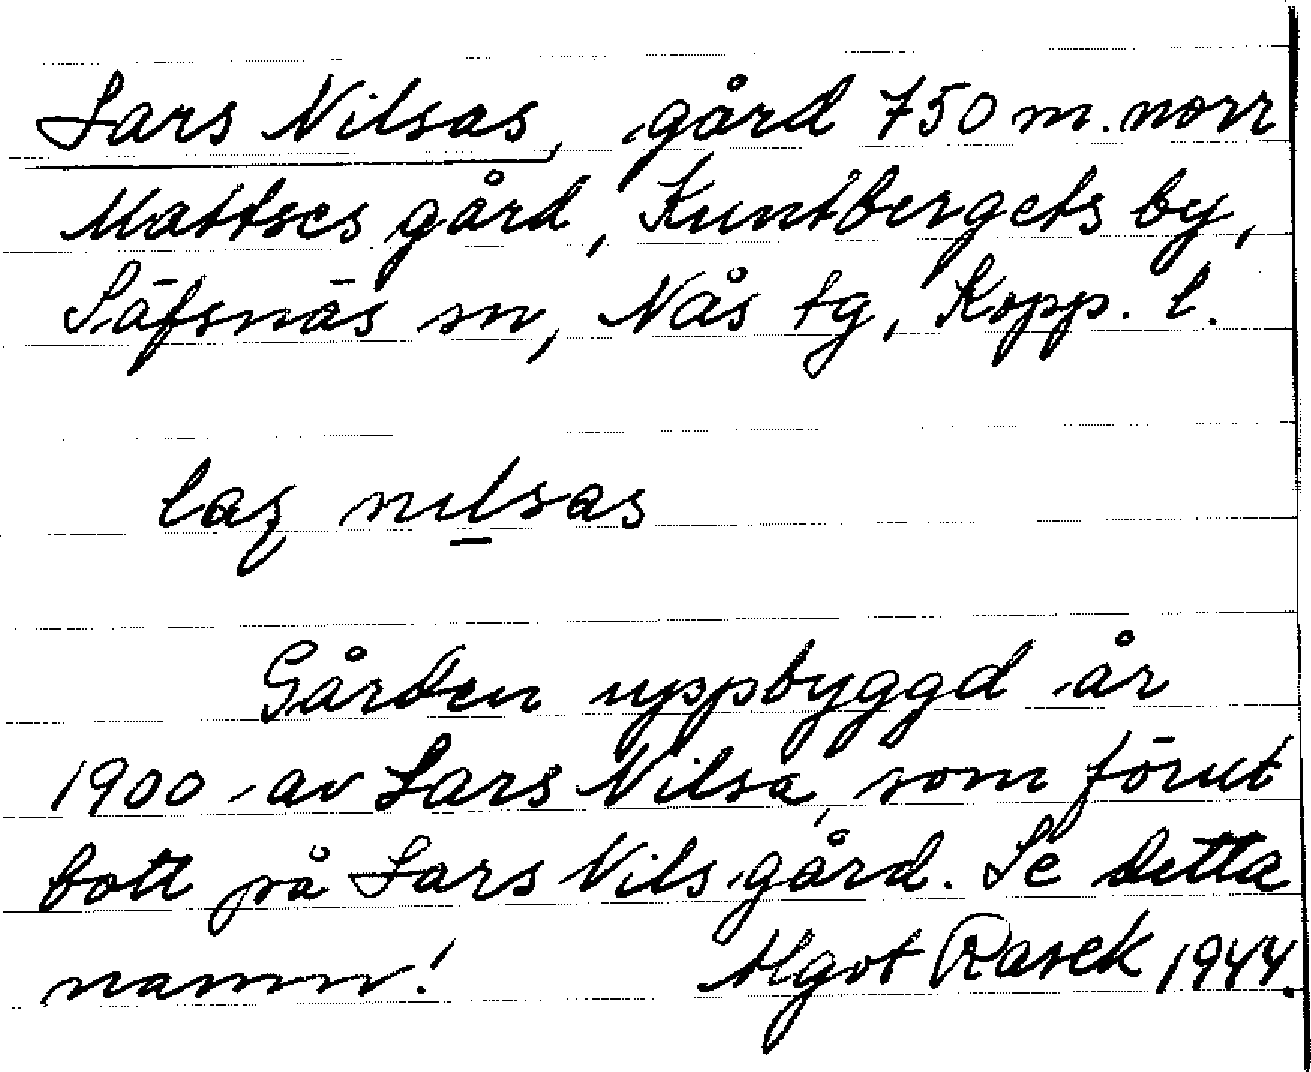 Lars Nilsas, gård 750 m. norr
Mattses gård, Kuntbergets by,
Säfsnäs sn, Nås tg, Kopp. l.
laʂ nilsas
Gården uppbyggd år
1900 av Lars Nilsa, som förut
bott på Lars Nils gård. Se detta
namn! Algot Rasek 1944.